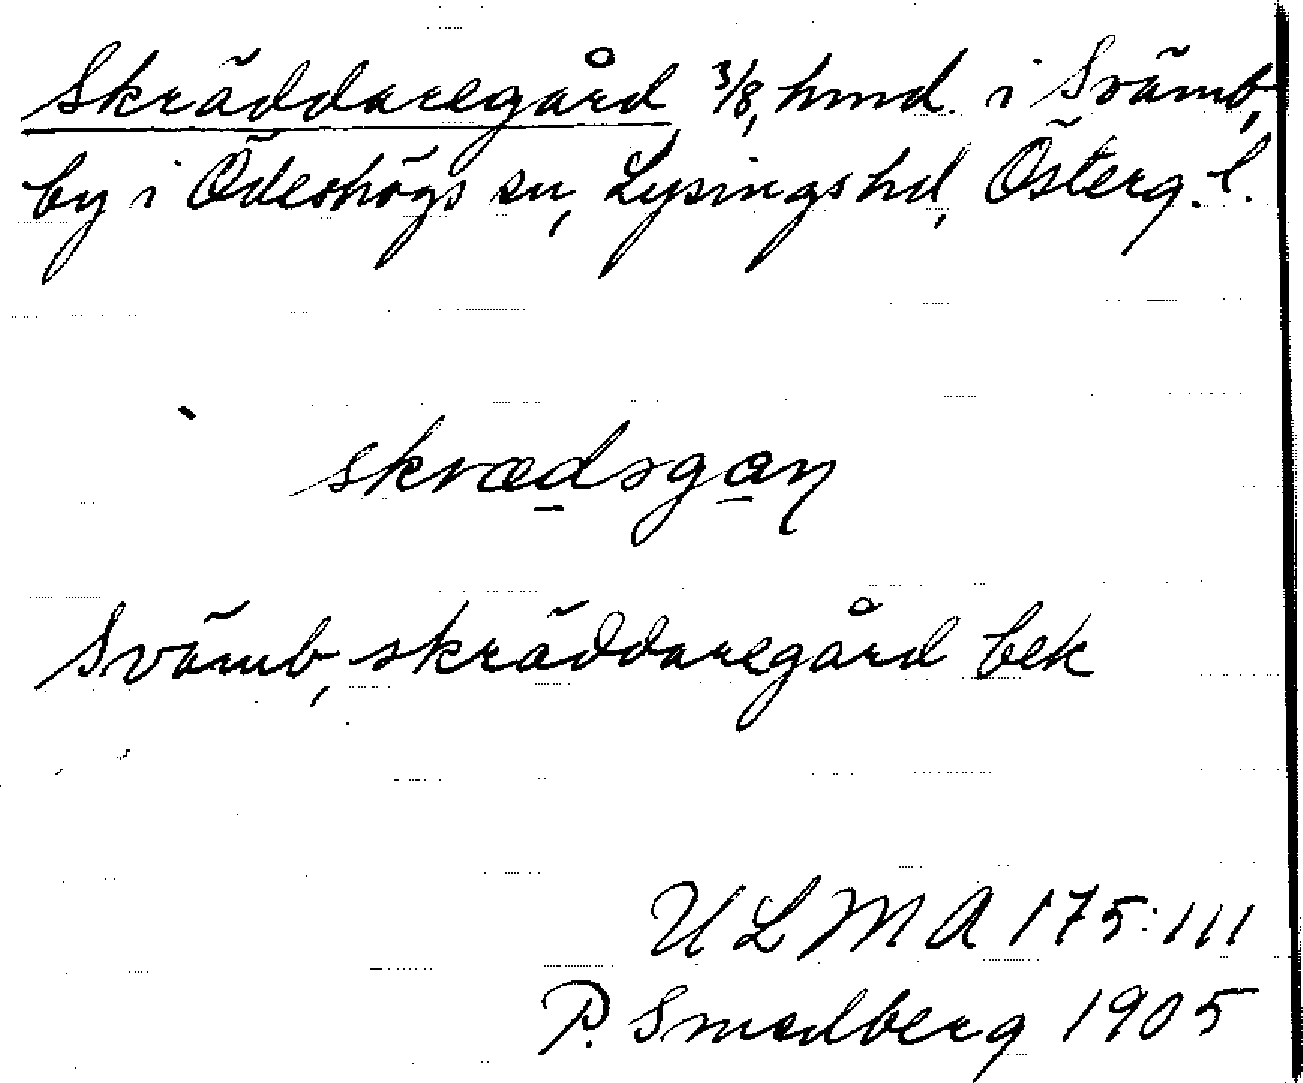 Skräddaregård, 3/8, hmd. i Svämb,
by i Ödeshögs sn, Lysings hd, Österg. l.
skrædsgan
Svämb, skräddaregård bek
ULMA 175:111
P. Smedberg 1905